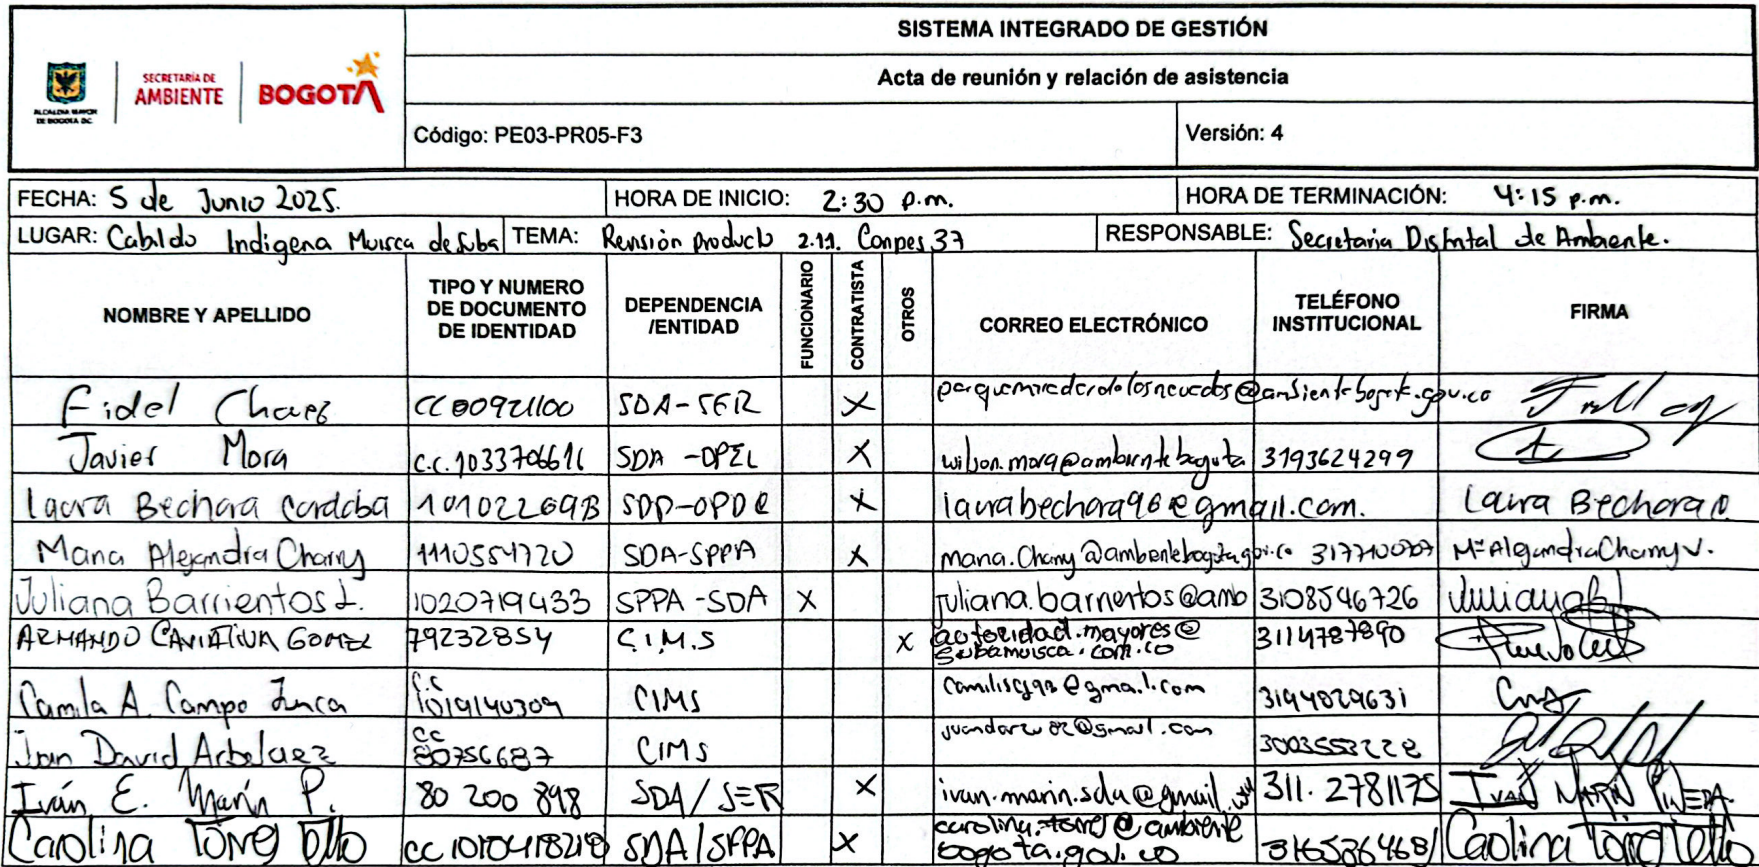 SISTEMA INTEGRADO DE GESTIÓN
ALCALDÍA MAYOR DE BOGOTÁ D.C.
SECRETARÍA DE AMBIENTE
BOGOTÁ
Acta de reunión y relación de asistencia
Código: PE03-PR05-F3 Versión: 4
FECHA: 5 de Junio 2025. HORA DE INICIO: 2:30 p.m. HORA DE TERMINACIÓN: 4:15 p.m.
LUGAR: Cabildo Indigena Muisca de Suba TEMA: Revisión producto 2.11. Conpes 37 RESPONSABLE: Secretaria Distrital de Ambiente.
NOMBRE Y APELLIDO TIPO Y NUMERO DE DOCUMENTO DE IDENTIDAD DEPENDENCIA /ENTIDAD FUNCIONARIO CONTRATISTA OTROS CORREO ELECTRÓNICO TELÉFONO INSTITUCIONAL FIRMA
Fidel Chaez SDA-SER X
Javier Mora c.c. 1033706616 SDA X wilson.mora@ambientebogota 3193624299
Laura Bechara Cordoba X laurabechara96@gmail.com. Laura Bechara
Maria Alejandra Chany 1110554720 SDA-SPPA X maria.Chany@ambientebogota.gov.co Mª Alejandra Chany V.
Juliana Barrientos L. 1020719433 SPPA-SDA X juliana.barrientos@amb 3108546726
ARMANDO CAVIATIVA GOMEZ 79232854 C.I.M.S X autoridad.mayores@
subamuisca.com.co 3114787890
Camila A. Campo c.c 1019140309 CIMS 3194829631
Juan David Arbelaez cc 80756687 CIMS 3003553228
Iván E. Marín P. 80 200 898 SDA/SER X ivan.marin.sda@gmail 311.2781175 IVAN MARIN PINEDA.
Carolina Torres SDA/SPPA X carolina.torres@ambiente
bogota.gov.co Carolina Torres